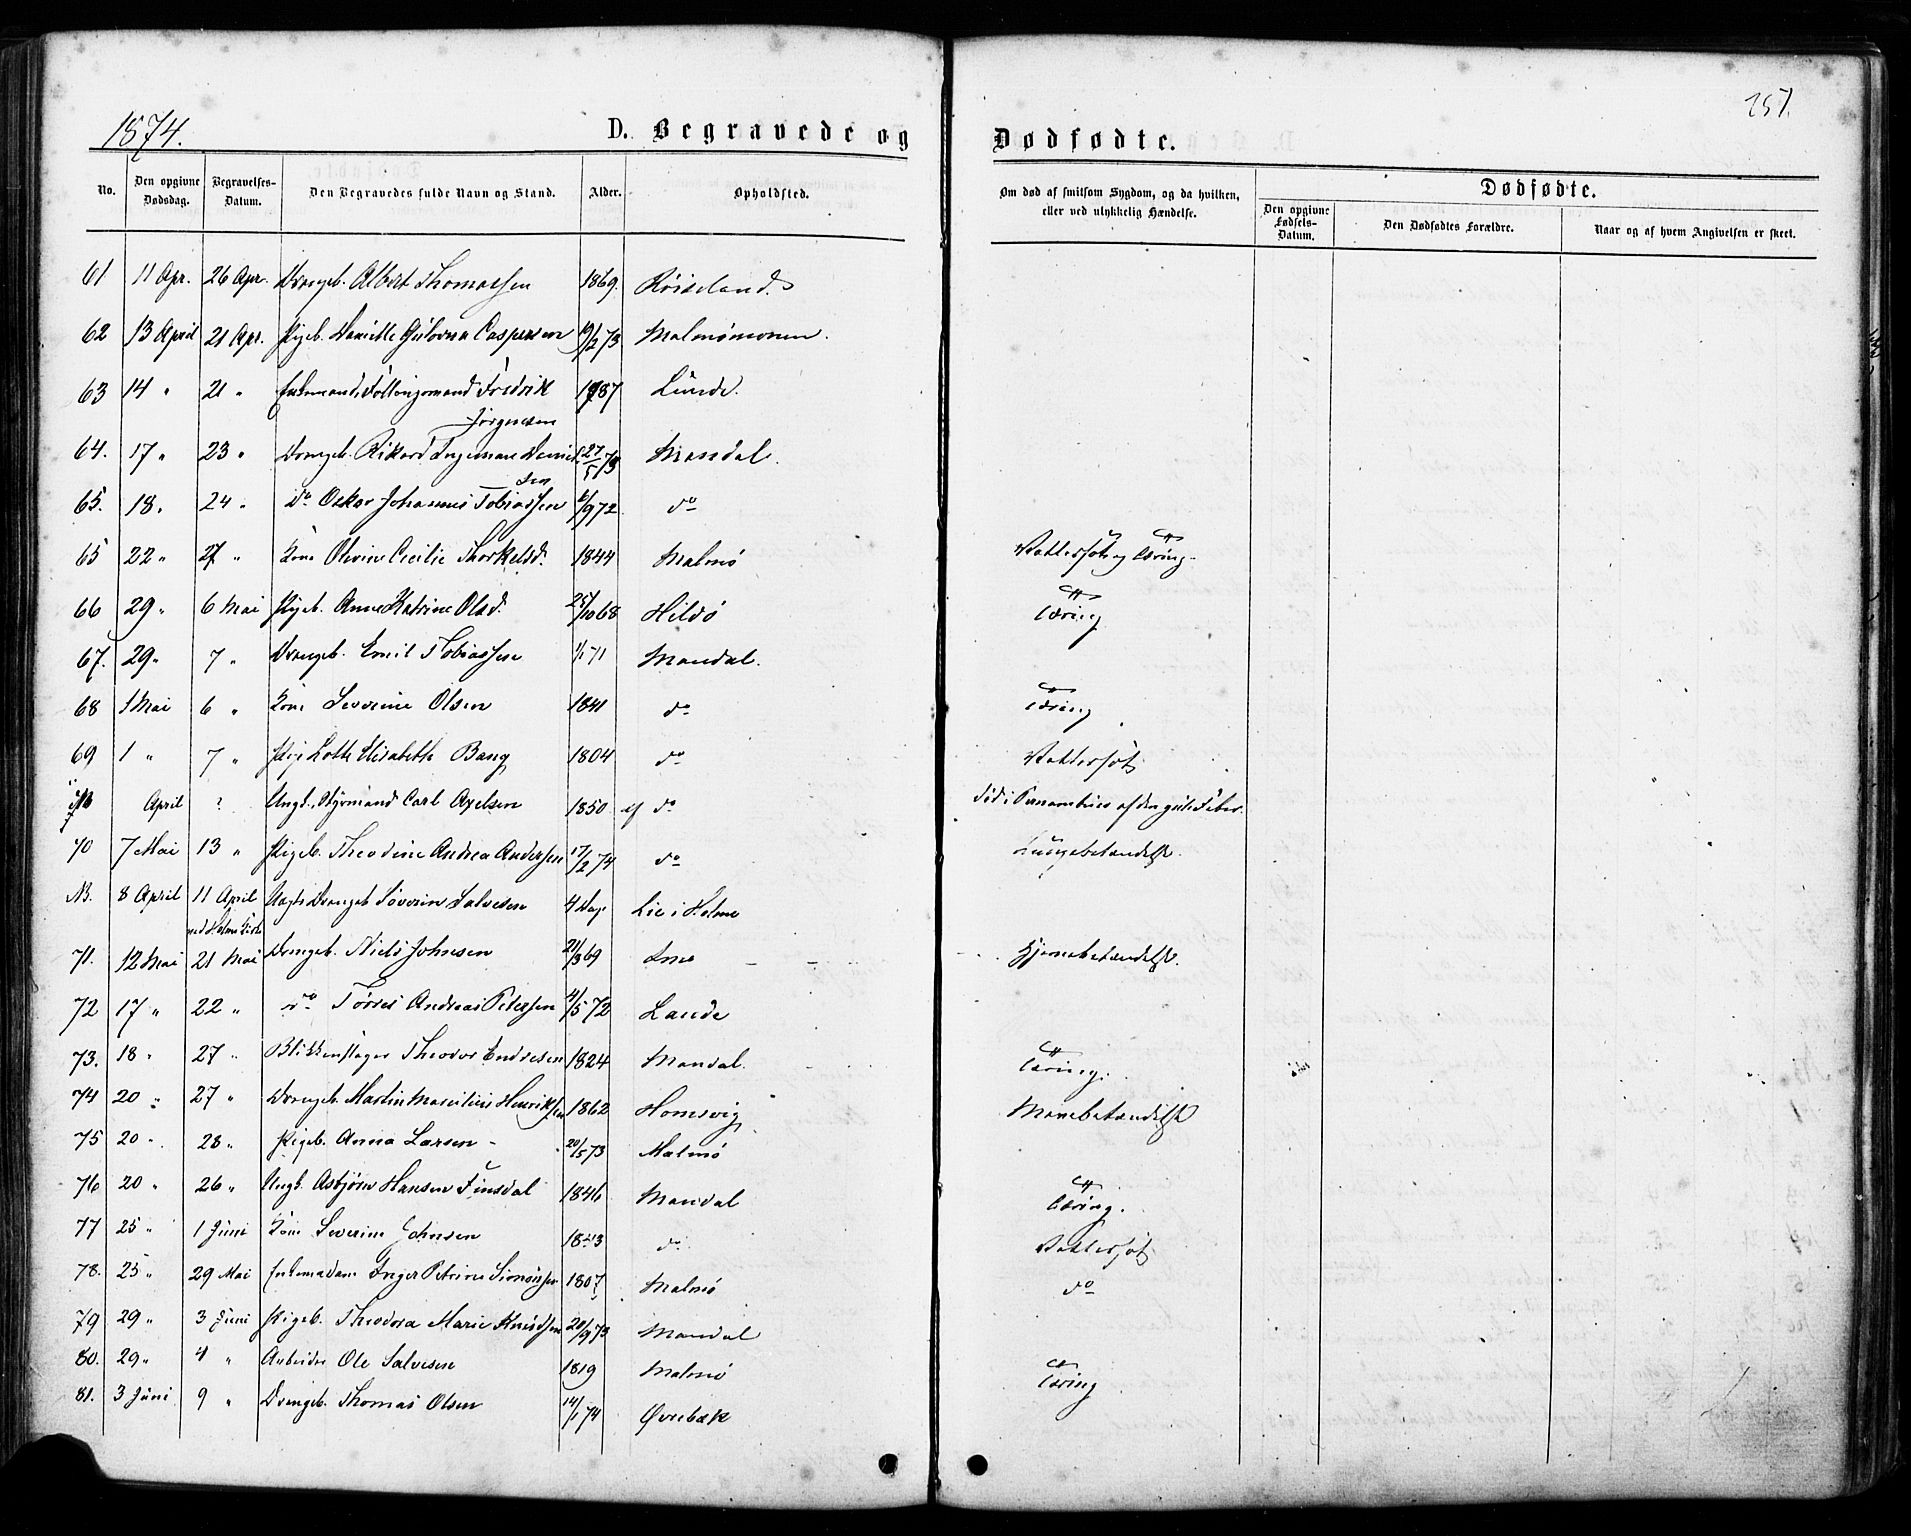 1874.
D. Begravede og
Dødfødte.
251.
No. Den opgivne Dødsdag. Begravelses-Datum. Den Begravedes fulde Navn og Stand. Alder. Opholdsted. Om død af smitsom Sygdom, og da hvilken, eller ved ulykkelig Hændelse. Dødfødte.
Den opgivne Fødsels-Datum. Den Dødfødtes Forældre. Naar og af hvem Angivelsen er skeet.
61 11 Apr. 26 Apr. Drengeb. Albert Thomassen 1869. Röiseland.
62 13 April 21 Apr. Pigeb. Danielle Gulovna Caspersen 19/2 73 Malmömonen.
63 14 " 21 " Enkemand, Föllingsmand Fredrik Jørgensen 1787 Lunde.
64. 17 " 23 " Drengeb. Rikard Ingeman Danielsen 27/5 73 Mandal.
65. 18 " 24 " do Oskar Johannes Tobiassen 6/9 72 do
65 22 " 27 " Kone Olevine Cecilie Thorkelsd. 1844 Malmö Vattersot og Tæring.
66 29 " 6 Mai Pigeb. Anne Katrine Olsd. 25/10 68 Hildö Tæring
67. 29 " 7 " Drengeb. Emil Tobiassen 1/1 71 Mandal.
68 1 Mai 6 " Kone Severine Olsen 1841 do Tæring
69 1 " 7 " Pige Lotte Elisabeth Bang 1804 do Vattersot
April ? Ungk., Styrmand Carl Axelsen 1850 af do död i Pernambuco af den gule Feber.
70 7 Mai 13 " Pigeb. Theodine Andrea Andersen 17/2 74 do Lungebetændelse.
NB. 8 April 11 April ved Holme Kirke Drengeb. Söveren Salvesen 4 Dage Lie i Holme
71. 12 Mai 21 Mai Drengeb. Niels Johnsen 21/3 69 Ime Hjernebetændelse.
72 17 " 22 " do Törres Andreas Petersen 4/5 72 Lande
73. 18 " 27 " Blikkenslager Theodor Endresen 1824 Mandal. Tæring.
74 20 " 27 " Drengeb. Martin Marcilius Henriksen 1862 Homsvig Mavebetændelse
75 20 " 28 " Pigeb. Anna Larsen 20/5 73 Malmö
76 20 " 26 " Ungk. Asbjörn Hansen Finsdal 1846 Mandal Tæring.
77 25 " 1 Juni Kone Severine Johnsen 1843 do Vattersot
78. 25 " 29 Mai Enkemadam Inger Petrine Simonsen 1807 Malmö do
79 29 " 3 Juni Pigeb. Theodora Marie Knudsen 20/9 73 Mandal
80. 29 " 4 " Arbeider Ole Salvesen 1819 Malmö Tæring
81. 3 Juni 9 " Drengeb. Thomas Olsen 14/1 74 Øvrebæk